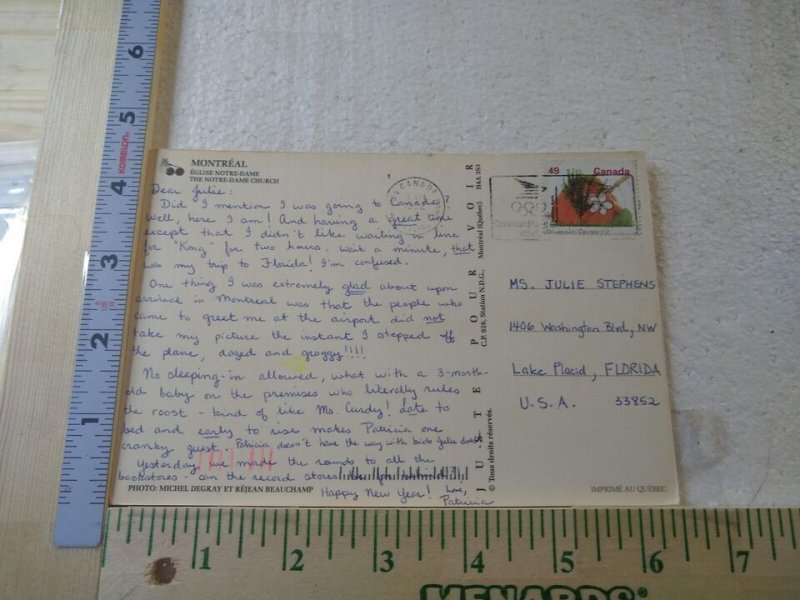 MONTRÉAL
ÉGLISE NOTRE-DAME
THE NOTRE-DAME CHURCH
Dear Julie:
Did I mention I was going to Canada?
Well, here I am! And having a great time
except that I didn't like waiting in line
for "Kong" for two hours. Wait a minute, that
was my trip to Florida! I'm confused.
One thing I was extremely glad about upon
arrival in Montreal was that the people who
came to greet me at the airport did not
take my picture the instant I stepped off
the plane, dazed and groggy!!!!
No sleeping-in allowed, what with a 3-month-
old baby on the premises who literally rules
the roost - kind of like Ms. Curdy! Late to
bed and early to rise makes Patricia one
cranky guest. Patricia doesn't have the way with kids Julie does!
Yesterday we made the rounds to all the
bookstores - on the record stores
Happy New Year! Love,
Patricia
PHOTO: MICHEL DEGRAY ET RÉJEAN BEAUCHAMP
© Tous droits réservés.
JUSTE POUR VOIR
C.P. 926, Station N.D.G., Montréal (Québec) H4A 3S3
CANADA
49 Canada
MS. JULIE STEPHENS
1406 Washington Blvd, NW
Lake Placid, FLORIDA
U.S.A. 33852
IMPRIMÉ AU QUÉBEC
1 2 3 4 5 6
KOMELON
1 2 3 4 5 6 7
MENARDS